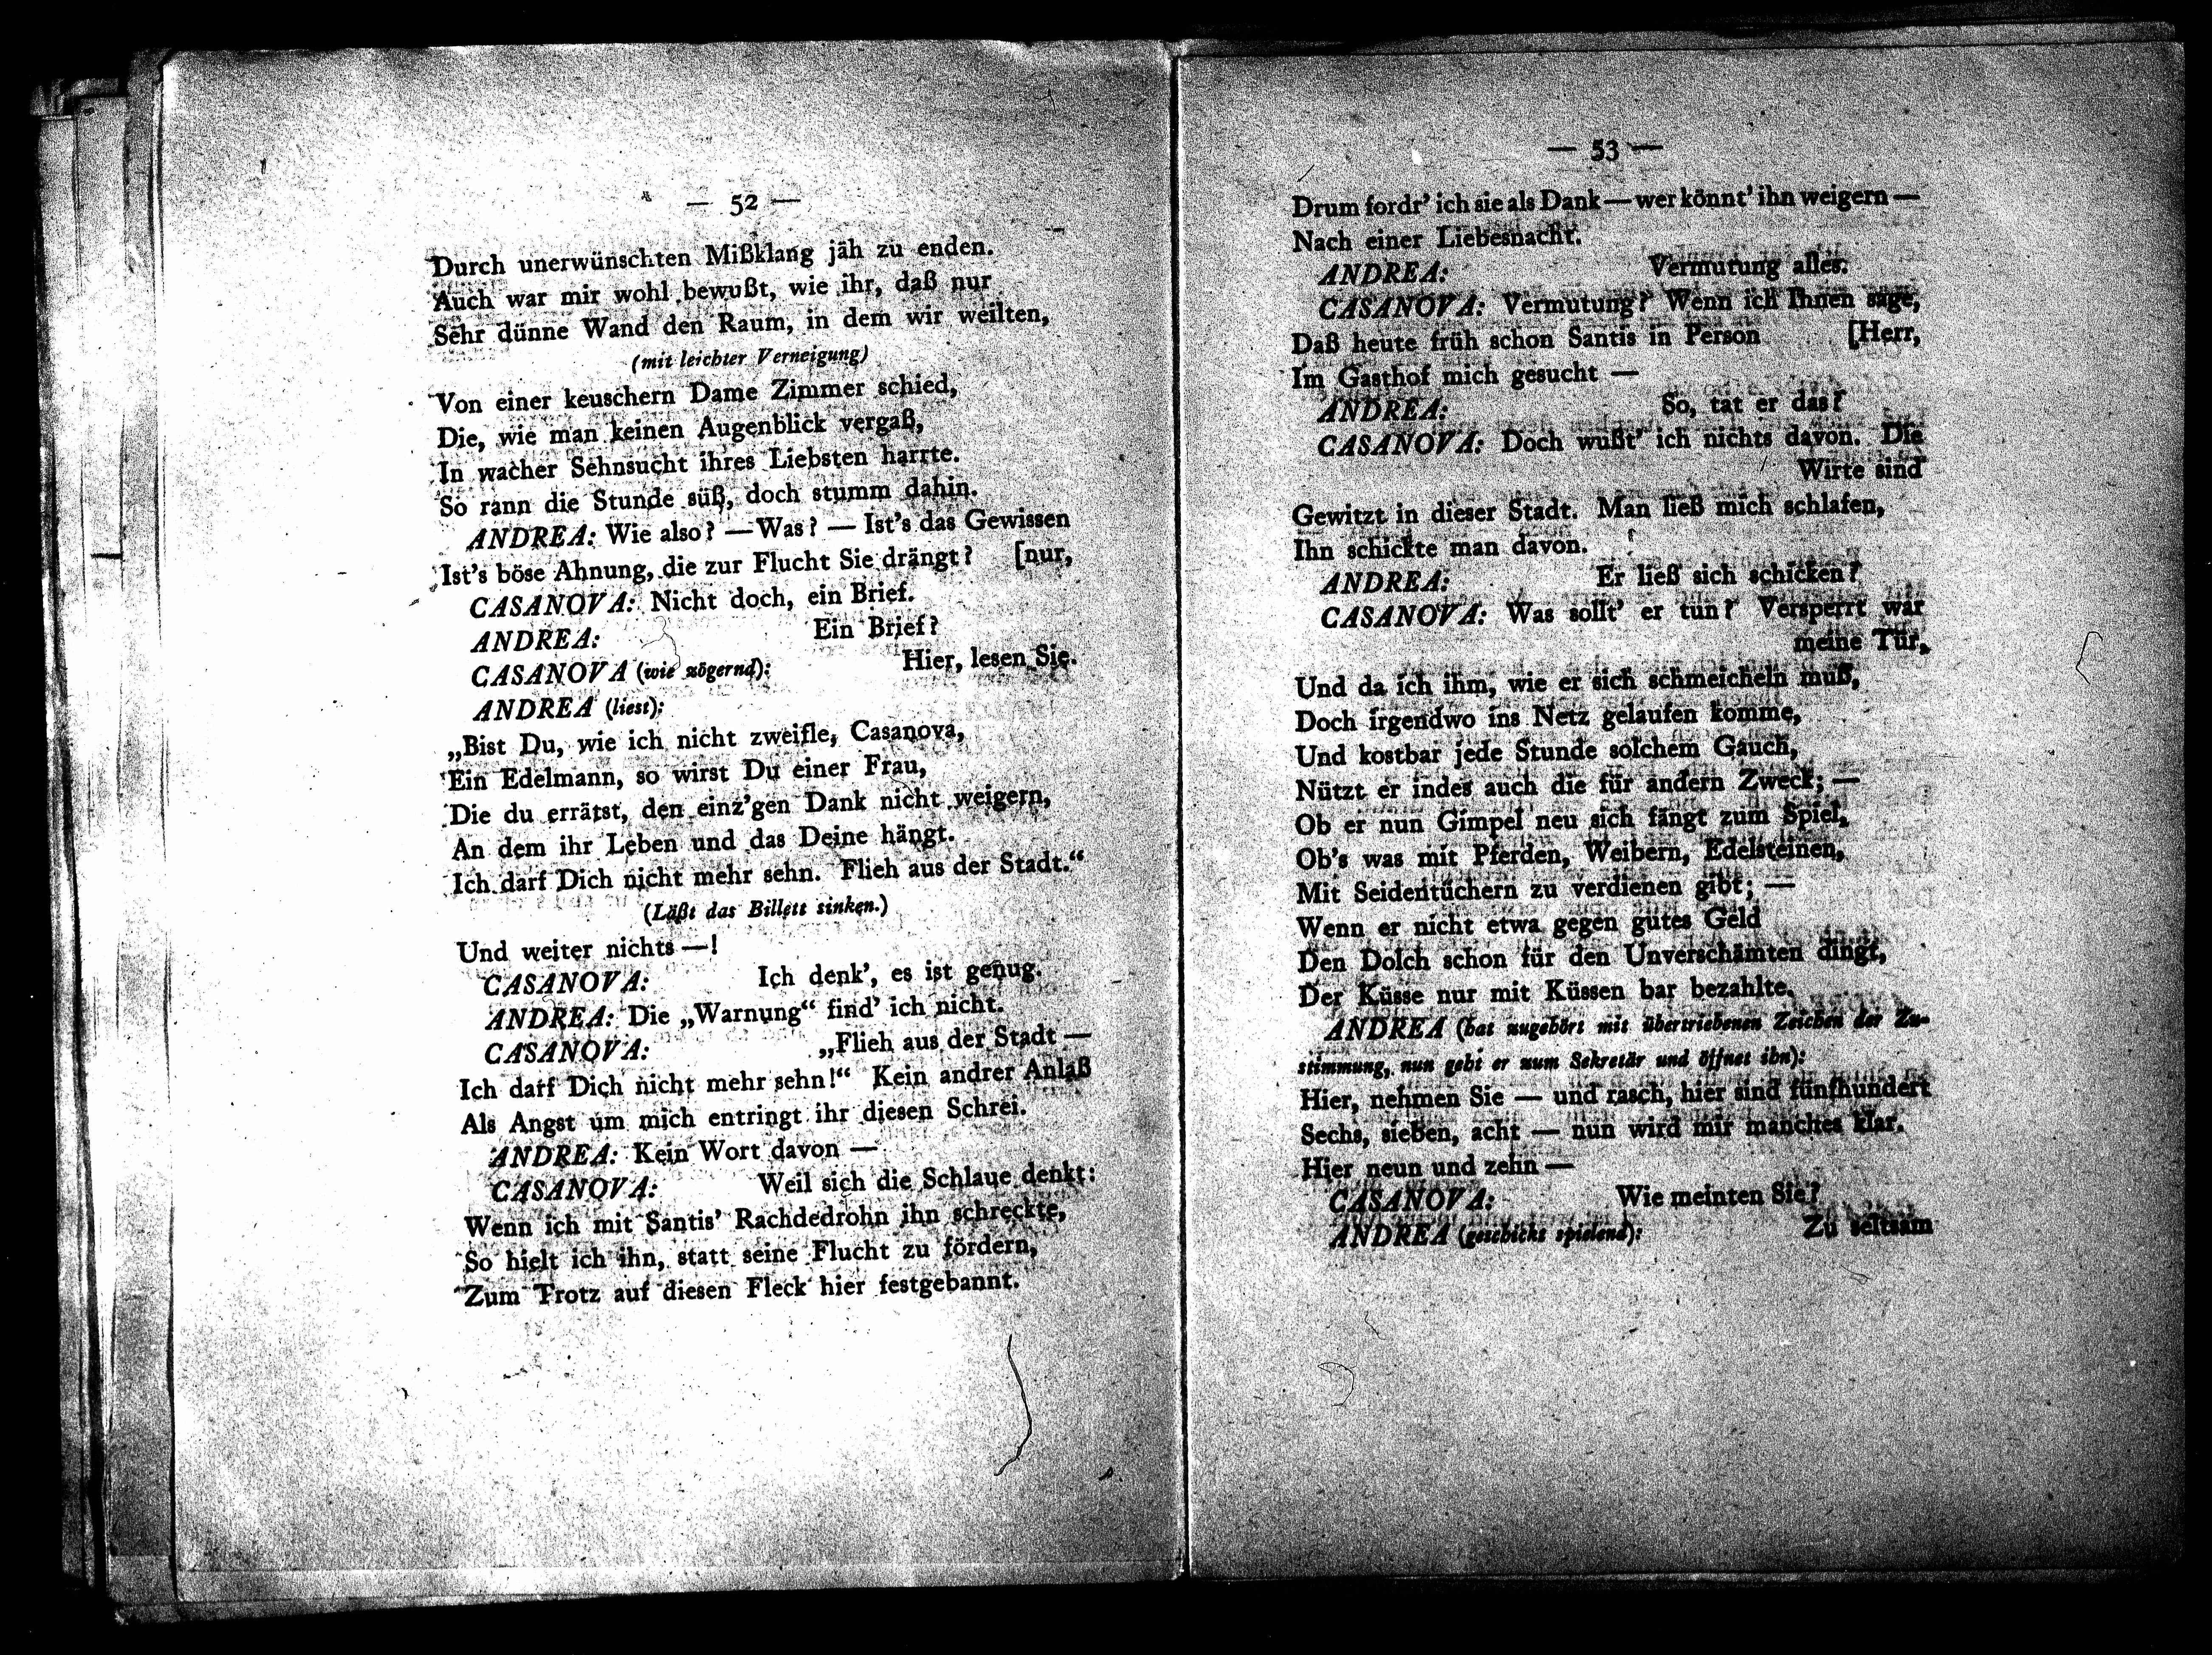 — 52 —
Durch unerwünschten Mißklang jäh zu enden.
Auch war mir wohl bewußt, wie ihr, daß nur
Sehr dünne Wand den Raum, in dem wir weilten,
(mit leichter Verneigung)
Von einer keuschern Dame Zimmer schied,
Die, wie man keinen Augenblick vergaß,
In wacher Sehnsucht ihres Liebsten harrte.
So rann die Stunde süß, doch stumm dahin.
ANDREA: Wie also? — Was? — Ist's das Gewissen
Ist's böse Ahnung, die zur Flucht Sie drängt? [nur,
CASANOVA: Nicht doch, ein Brief.
ANDREA: Ein Brief?
CASANOVA (wie zögernd): Hier, lesen Sie.
ANDREA (liest):
„Bist Du, wie ich nicht zweifle, Casanova,
Ein Edelmann, so wirst Du einer Frau,
Die du errätst, den einz'gen Dank nicht weigern,
An dem ihr Leben und das Deine hängt.
Ich darf Dich nicht mehr sehn. Flieh aus der Stadt.“
(Läßt das Billett sinken.)
Und weiter nichts —!
CASANOVA: Ich denk', es ist genug.
ANDREA: Die „Warnung“ find' ich nicht.
CASANOVA: „Flieh aus der Stadt —
Ich darf Dich nicht mehr sehn!“ Kein andrer Anlaß
Als Angst um mich entringt ihr diesen Schrei.
ANDREA: Kein Wort davon —
CASANOVA: Weil sich die Schlaue denkt:
Wenn ich mit Santis' Rachdedrohn ihn schreckte,
So hielt ich ihn, statt seine Flucht zu fördern,
Zum Trotz auf diesen Fleck hier festgebannt.
— 53 —
Drum fordr' ich sie als Dank — wer könnt' ihn weigern —
Nach einer Liebesnacht.
ANDREA: Vermutung alles.
CASANOVA: Vermutung? Wenn ich Ihnen sage,
Daß heute früh schon Santis in Person [Herr,
Im Gasthof mich gesucht —
ANDREA: So, tat er das?
CASANOVA: Doch wußt' ich nichts davon. Die
Wirte sind
Gewitzt in dieser Stadt. Man ließ mich schlafen,
Ihn schickte man davon.
ANDREA: Er ließ sich schicken?
CASANOVA: Was sollt' er tun? Versperrt war
meine Tür,
Und da ich ihm, wie er sich schmeicheln muß,
Doch irgendwo ins Netz gelaufen komme,
Und kostbar jede Stunde solchem Gauch,
Nützt er indes auch die für andern Zweck; —
Ob er nun Gimpel neu sich fängt zum Spiel,
Ob's was mit Pferden, Weibern, Edelsteinen,
Mit Seidentüchern zu verdienen gibt; —
Wenn er nicht etwa gegen gutes Geld
Den Dolch schon für den Unverschämten dingt,
Der Küsse nur mit Küssen bar bezahlte.
ANDREA (hat zugehört mit übertriebenen Zeichen der Zu-
stimmung, nun geht er zum Sekretär und öffnet ihn):
Hier, nehmen Sie — und rasch, hier sind fünfhundert
Sechs, sieben, acht — nun wird mir manches klar.
Hier neun und zehn —
CASANOVA: Wie meinten Sie?
ANDREA (geschickt spielend): Zu seltsam